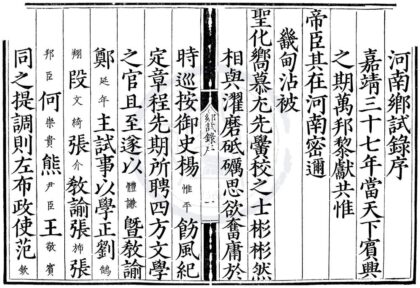 河南鄉試錄序
嘉靖三十七年當天下賓興
之期萬邦黎獻共惟
帝臣其在河南密邇
畿甸沾被
聖化嚮慕尤先黌校之士彬彬然
相與濯磨砥礪思欲奮庸於
鄉試錄序
一
時巡按御史楊惟平飭風紀
定章程先期所聘四方文學
之官且至遂以體謙暨教諭
鄭延年主試事以學正劉鵠
翔段文綺張介教諭張柿張
邦臣何崇貴熊尹臣王敬賓
同之提調則左布政使范欽